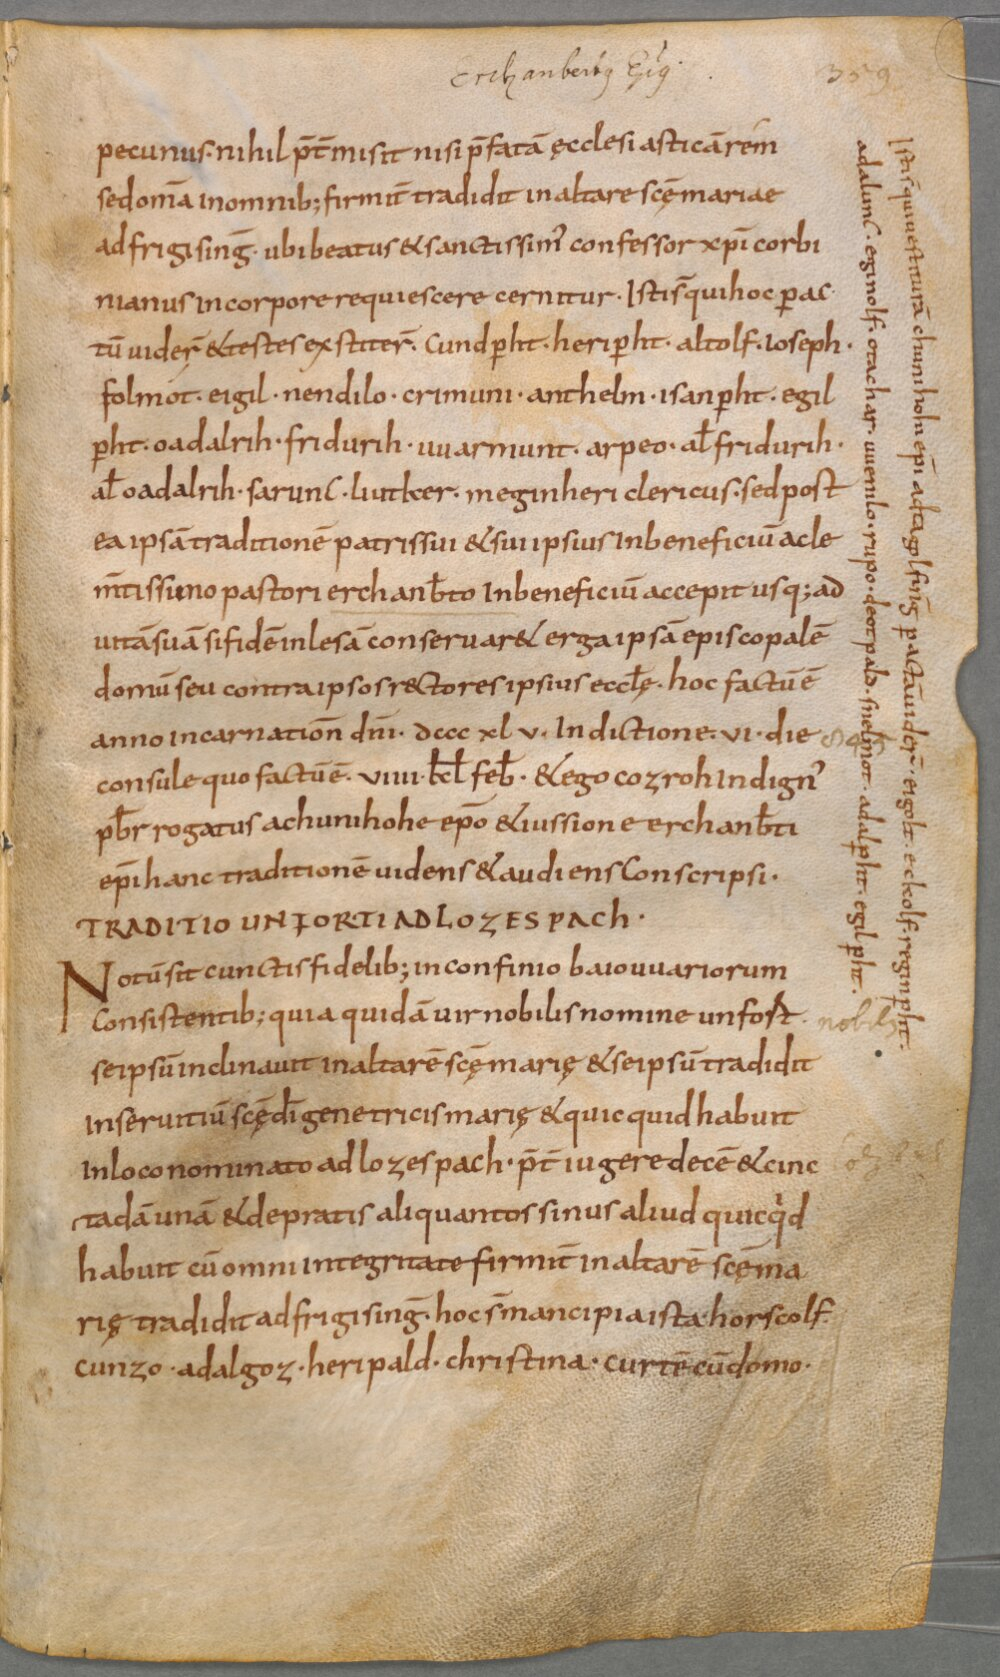 Erchanbertus Episcopus
359
pecunus· nihil p̄t̄misit nisi p̄fatā ęcclesiasticā rem
sed omīa in omnib; firmit̄ tradidit in altare scę̄ mariae
ad frigisinḡ· ubi beatus & sanctissim᾽ confessor xp̄i corbi
nianus in corpore requiescere cernitur· Isti s̄ qui hoc pac
tū uider̄ & testes exstiter̄· Cundp̱ht· herip̱ht· altolf· Ioseph·
folmot· eigil· nendilo· crimuni· anthelm· isanp̱ht· egil
p̱ht· oadalrih· fridurih· uuarmunt· arpeo· al̄ fridurih·
al̄ oadalrih· sarunc· liutker· meginheri clericus· sed post
ea ipsā traditionē patris sui & sui ipsius In beneficiū a cle
m̄tissimo pastori erchanb̄to In beneficiū accepit usq; ad
uitā suā si fidē inlesā conseruar& erga ipsā episcopalē
domū seu contra ipsos rectores ipsius eccl̄ę· hoc factū ē
anno incarnation̄ dn̄i· dccc xl v· Indictione· vi· die
consule quo factū ē· viiii· kl̄ feb̄· & ego cozroh Indign᾽
pb̄r rogatus a chunihohe ep̄o & iussione erchanb̄ti
ep̄i hanc traditionē uidens & audiens Conscripsi·
TRADITIO UNFORTI AD LOZESPACH·
Notū sit cunctis fidelib; in confinio baiouuariorum
Consistentib; quia quidā uir nobilis nomine unfort
seipsū inclinauit in altarē scę̄ marię & seipsū tradidit
In seruitiū scę̄ dī genetricis marię & quicquid habuit
In loco nominato ad lozespach· p̄t̄ iugere decē & cinc
tadā unā & de pratis aliquantos sinus aliud quicqͥd
habuit cū omni integritate firmit̄ in altarē scę̄ ma
rię tradidit ad frigisinḡ· hoc s̄ mancipia ista· horscolf·
Cunzo· adalgoz· heripald· christina· curtē cū domo·
Isti s̄ qui uestiturā chunihohi ep̄i ad tagolfinḡ pactā uider̄· eigolt· eckolf· reginp̱ht·
adalunc· eginolf· otachar· uuenilo· rupo· deotpald· snelmot· adalp̱ht· egilp̱ht·
845
nobilis